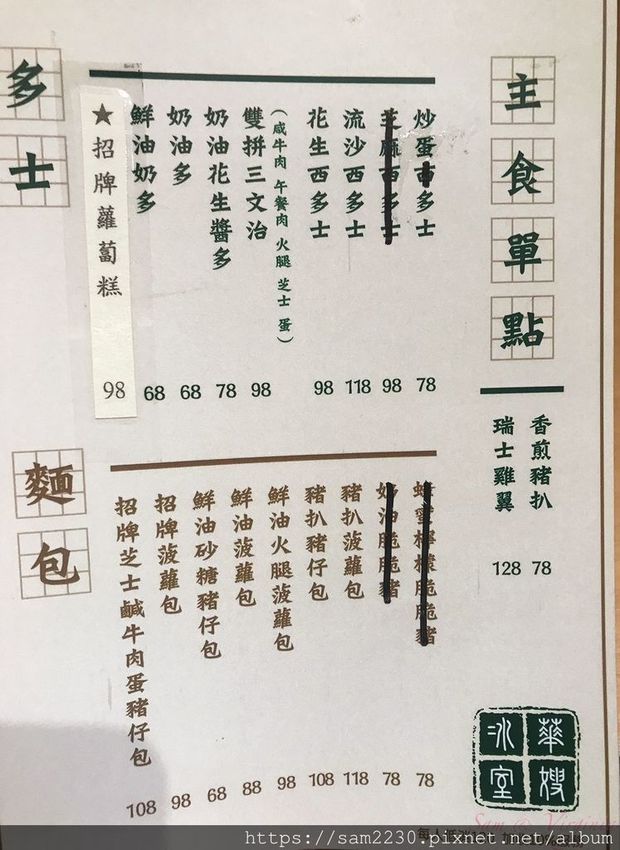 主食單點
香煎豬扒 78
瑞士雞翼 128
多士
炒蛋西多士 78
芝麻西多士 98
流沙西多士 118
花生西多士 98
(咸牛肉 午餐肉 火腿 芝士 蛋)
雙拼三文治 98
奶油花生醬多 78
奶油多 68
鮮油奶多 68
★招牌蘿蔔糕 98
麵包
蜂蜜檸檬脆脆豬 78
奶油脆脆豬 78
豬扒菠蘿包 118
豬扒豬仔包 108
鮮油火腿菠蘿包 98
鮮油菠蘿包 88
鮮油砂糖豬仔包 68
招牌菠蘿包 98
招牌芝士鹹牛肉蛋豬仔包 108
華嫂冰室
Sam @ Virginia
https://sam2230.pixnet.net/album